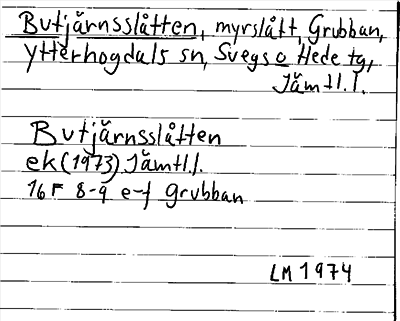 Butjärnsslåtten, myrslått, Grubban,
Ytterhogdals sn, Svegs o Hede tg,
Jämtl.l.
Butjärnsslåtten
ek (1973) Jämtl.l.
16F 8-9 e-f Grubban
LM 1974